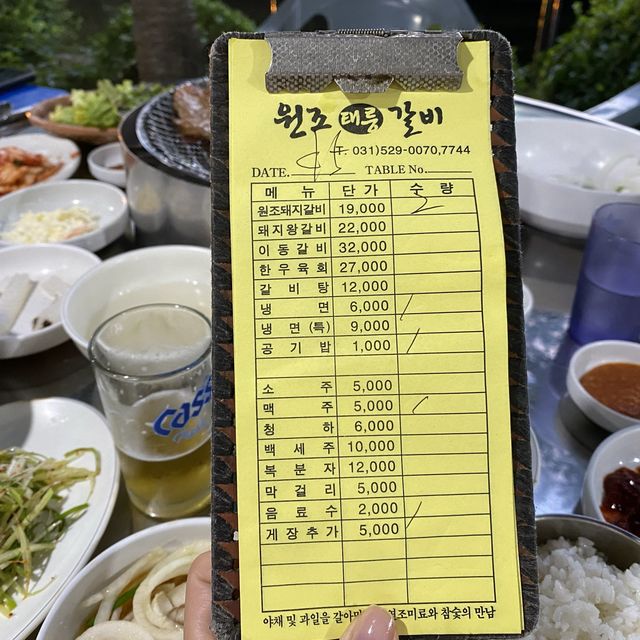 원조 태릉 갈비
T. 031)529-0070,7744
DATE. TABLE No.
메뉴 단가 수량
원조돼지갈비 19,000 2
돼지왕갈비 22,000
이동갈비 32,000
한우육회 27,000
갈비탕 12,000
냉면 6,000 /
냉면(특) 9,000
공기밥 1,000 /
소주 5,000
맥주 5,000
청하 6,000
백세주 10,000
복분자 12,000
막걸리 5,000
음료수 2,000
게장추가 5,000 /
야채 및 과일을 갈아 원조미료와 참숯의 만남
Cass